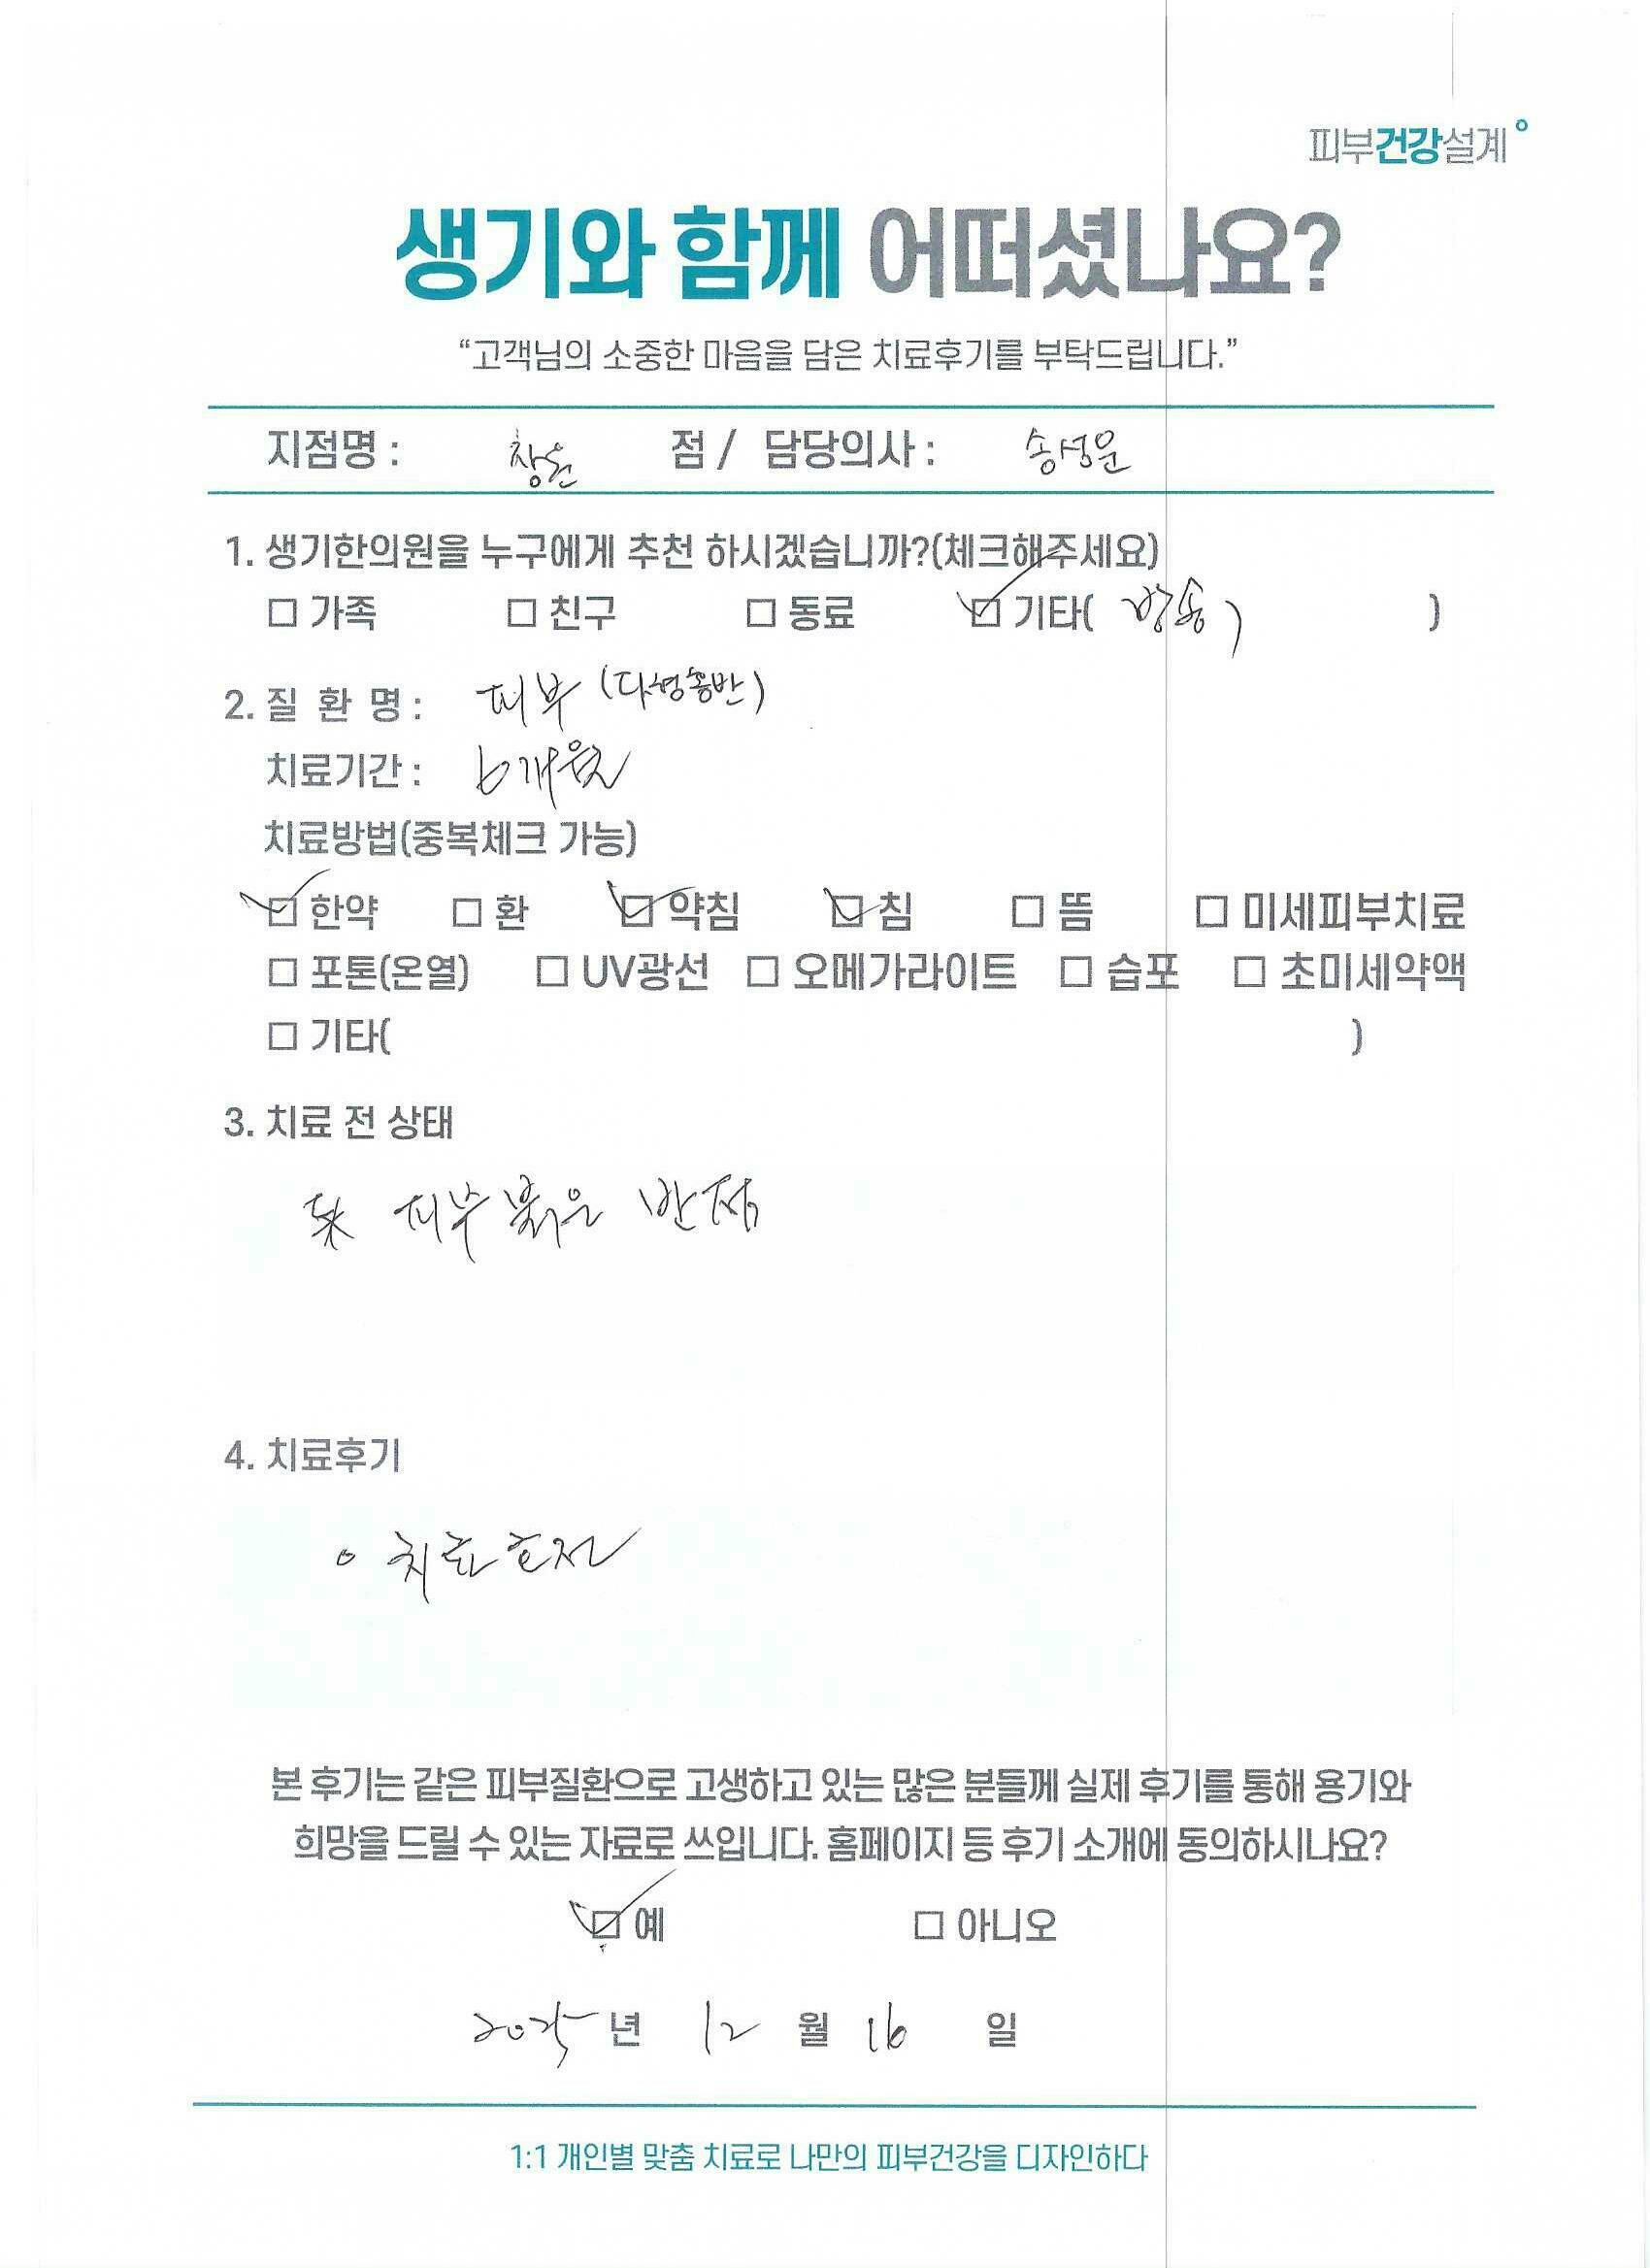 피부건강설계
생기와 함께 어떠셨나요?
“고객님의 소중한 마음을 담은 치료후기를 부탁드립니다.”
지점명 : 창원 점 / 담당의사 : 송성문
1. 생기한의원을 누구에게 추천 하시겠습니까?(체크해주세요)
□ 가족 □ 친구 □ 동료 ☑ 기타( 방송 ) )
2. 질 환 명 : 피부 (다형홍반)
치료기간 : 6개월
치료방법(중복체크 가능)
☑ 한약 □ 환 ☑ 약침 ☑ 침 □ 뜸 □ 미세피부치료
□ 포톤(온열) □ UV광선 □ 오메가라이트 □ 습포 □ 초미세약액
□ 기타( )
3. 치료 전 상태
피부 붉은 반점
4. 치료후기
○ 치료 호전
본 후기는 같은 피부질환으로 고생하고 있는 많은 분들께 실제 후기를 통해 용기와
희망을 드릴 수 있는 자료로 쓰입니다. 홈페이지 등 후기 소개에 동의하시나요?
☑ 예 □ 아니오
2025 년 12 월 16 일
1:1 개인별 맞춤 치료로 나만의 피부건강을 디자인하다